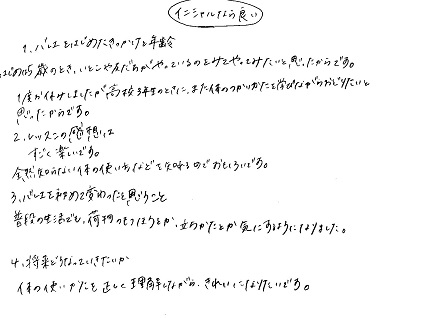 イニシャルなら良い
1、バレエをはじめたきっかけと年齢
はじめは5歳のとき、いとこや友だちがやっているのをみてやってみたいと思ったからです。
1度お休みしましたが高校3年生のときに、また体のつかいかたを学びながらおどりたいと
思ったからです。
2、レッスンの感想は
すごく楽しいです。
全然知らない体の使い方などを知れるのでおもしろいです。
3、バレエを初めて変わったと思うこと
普段の生活でも、荷物のもつほうとか、立ちかたとか気にするようになりました。
4、将来どうなっていきたいか
体の使いかたを正しく理解しながら、きれいになりたいです。